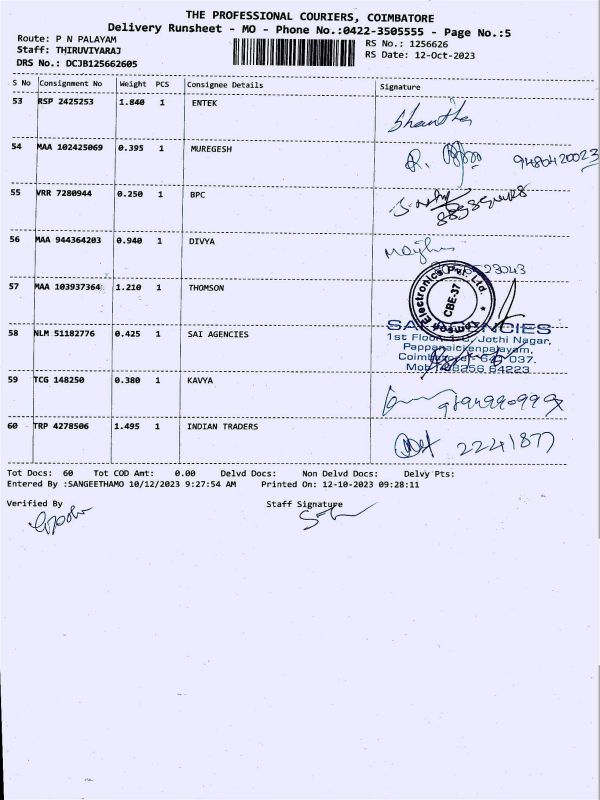 THE PROFESSIONAL COURIERS, COIMBATORE
Delivery Runsheet - MO - Phone No.:0422-3505555 - Page No.:5
Route: P N PALAYAM
RS No.: 1256626
Staff: THIRUVIYARAJ
RS Date: 12-Oct-2023
DRS No.: DCJB125662605
S No Consignment No Weight PCS Consignee Details Signature
53 RSP 2425253 1.840 1 ENTEK
54 MAA 102425069 0.395 1 MUREGESH 9480420023
55 VRR 7280944 0.250 1 BPC
56 MAA 944364203 0.940 1 DIVYA
57 MAA 103937364 1.210 1 THOMSON
Electronics Pvt. Ltd.
CBE-37
58 NLM 51182776 0.425 1 SAI AGENCIES
1st Floor, Jothi Nagar,
Pappanaickenpalayam,
59 TCG 148250 0.380 1 KAVYA
60 TRP 4278506 1.495 1 INDIAN TRADERS 2241877
Tot Docs: 60 Tot COD Amt: 0.00 Delvd Docs: Non Delvd Docs: Delvy Pts:
Entered By :SANGEETHAMO 10/12/2023 9:27:54 AM Printed On: 12-10-2023 09:28:11
Verified By Staff Signature